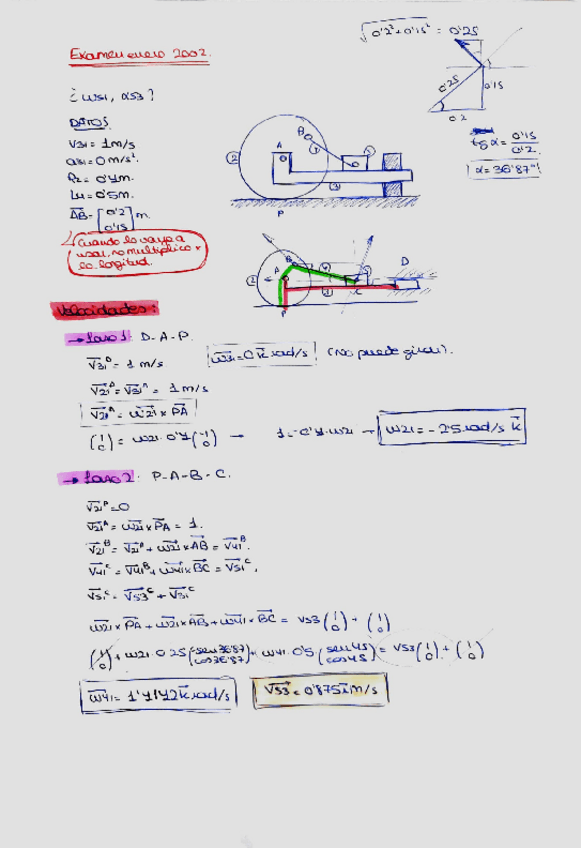 √0'2²+0'15² = 0'25
Examen enero 2002.
0'25
0'15
0.2
¿ω51, α53?
DATOS
V31 = 1m/s
a31 = 0 m/s².
R2 = 0'4m.
L4 = 0'5m.
AB = [0'2 0'15] m.
tg α = 0'15/0'2.
α = 36'87º
Cuando lo vaya a
usar, no multiplico x
la longitud.
A
B
2
4
5
3
P
A
B
C
D
2
4
5
3
P
Velocidades:
→ Lazo 1: D-A-P.
V31ᴰ = 1 m/s
ω31 = 0 k rad/s (No puede girar).
V21ᴬ = V31ᴬ = 1 m/s
V21ᴬ = ω21 x PA
(1 0) = ω21 · 0'4 (-1 0) → 1 = -0'4·ω21 → ω21 = -2'5 rad/s k
→ Lazo 2: P-A-B-C.
V21ᴾ = 0
V21ᴬ = ω21 x PA = 1.
V21ᴮ = V21ᴬ + ω21 x AB = V41ᴮ.
V41ᶜ = V41ᴮ + ω41 x BC = V51ᶜ.
V51ᶜ = V53ᶜ + V31ᶜ
ω21 x PA + ω21 x AB + ω41 x BC = V53 (1 0) + (1 0)
(1 0) + ω21 · 0'25 (-sen 36'87 cos 36'87) + ω41 · 0'5 (sen 45 cos 45) = V53 (1 0) + (1 0)
ω41 = 1'4142 k rad/s
V53 = 0'875 i m/s